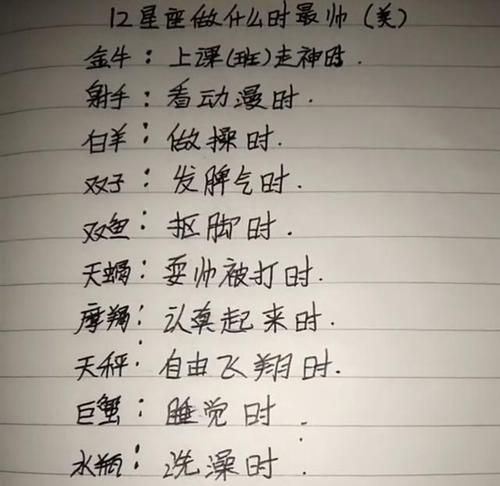 12星座做什么时最帅（美）
金牛：上课(班)走神时.
射手：看动漫时.
白羊：做操时.
双子：发脾气时.
双鱼：抠脚时.
天蝎：耍帅被打时.
摩羯：认真起来时.
天秤：自由飞翔时.
巨蟹：睡觉时.
水瓶：洗澡时.